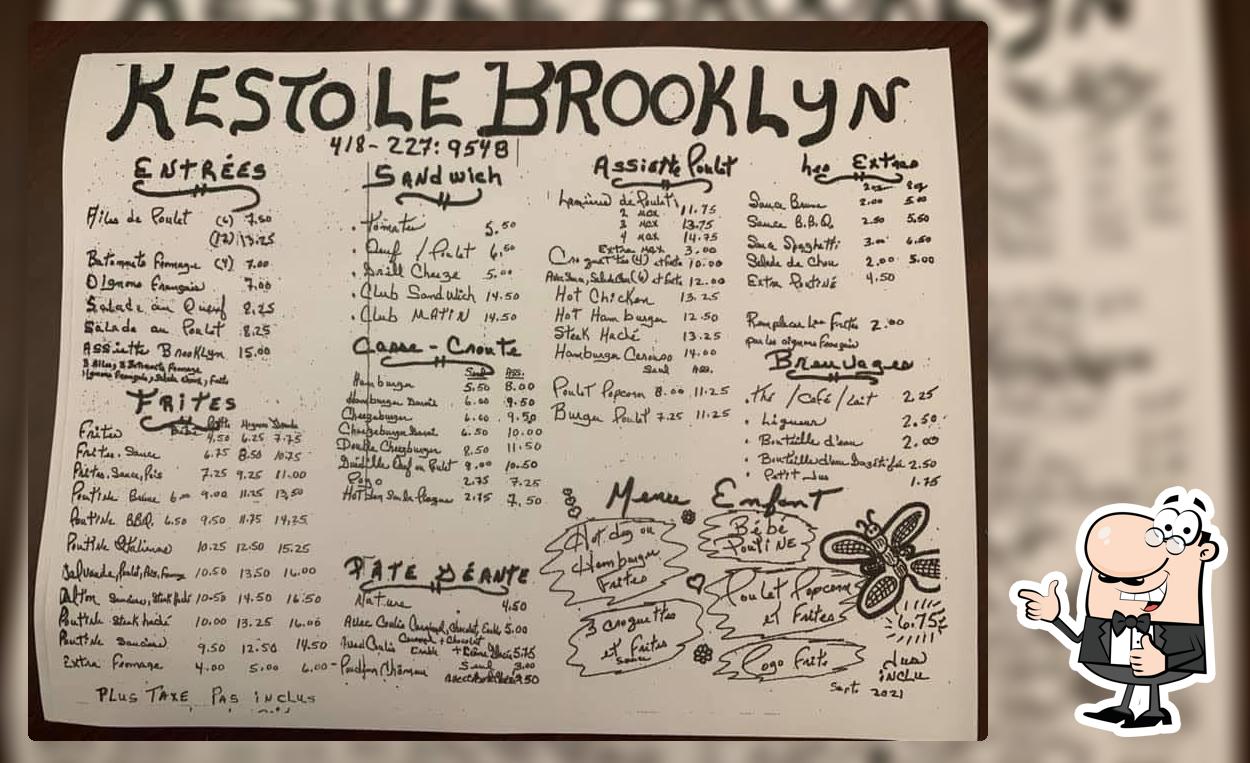 RESTO LE BROOKLYN
418-227:9548
ENTRÉES
Ailes de Poulet (6) 7.50
(12) 13.25
Batonnets Fromage (4) 7.00
Oignons Français 7.00
Salade au Oeuf 8.25
Salade au Poulet 8.25
Assiette Brooklyn 15.00
3 Ailes, 2 Batonnets Fromage
Oignons Français, Salade choux, Frites
FRITES
Frites 4.50 6.25 7.75
Frites, Sauce 6.75 8.50 10.75
Frites, Sauce, Pois 7.25 9.25 11.00
Poutine Brune 6.00 9.00 11.25 13.50
Poutine BBQ. 6.50 9.50 11.75 14.25
Poutine Italienne 10.25 12.50 15.25
Galvaude, Poulet, Pois, Fromage 10.50 13.50 16.00
Saucisses, Steak haché 10.50 14.50 16.50
Poutine Steak haché 10.00 13.25 16.00
Poutine Saucisse 9.50 12.50 14.50
Extra Fromage 4.00 5.00 6.00
PLUS TAXE PAS INCLUS
SANDWICH
• Tomates 5.50
• Oeuf / Poulet 6.50
• Grill Cheeze 5.00
• Club Sandwich 14.50
• Club MATIN 14.50
Casse-Croute
Seul Ass.
Hamburger 5.50 8.00
Hamburger 6.00 9.50
Cheezeburger 6.00 9.50
Cheezeburger 6.50 10.00
Double Cheezburger 8.50 11.50
Oeuf ou Poulet 8.00 10.50
Pogo 2.75 7.25
Hot Dog 2.75 7.50
PATE GÉANTE
Nature 4.50
Avec Coulis Caramel, Chocolat, Erable 5.00
Avec Coulis Caramel + Chocolat
Erable + Crème Glacée 5.75
Pouding Chômeur Seul 3.00
Assiette Poulet
Lanières de Poulet
2 MCX 11.75
3 MCX 13.75
4 MCX 14.75
Extra MCX 3.00
Croquettes (4) et frites 10.00
(6) et frites 12.00
Hot Chicken 13.25
Hot Hamburger 12.50
Steak Haché 13.25
Hamburger 14.00
Seul Ass.
Poulet Popcorn 8.00 11.25
Burger Poulet 7.25 11.25
Les Extras
2oz 8oz
Sauce Brune 2.00 5.00
Sauce B.B.Q. 2.50 5.50
Sauce Spaghetti 3.00 6.50
Salade de Chou 2.00 5.00
Extra Poutine 4.50
Remplacer les Frites 2.00
par les oignons Français
Breuvages
• thé /café/lait 2.25
• Liqueur 2.50
• Bouteille d'eau 2.00
• Bouteille d'eau Gazéifiée 2.50
• Petit Jus 1.75
Menu Enfant
Hot dog ou
Hamburger
Frites
Bébé
Poutine
Poulet Popcorn
et Frites
3 croquettes
et frites
sauce
Pogo Frites
6.75¢
Jus
INCLU
Sept 2021